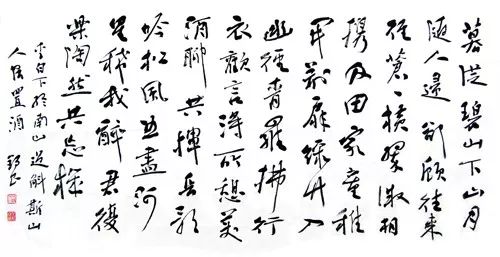 暮從碧山下山月
随人歸卻顧所來
徑蒼々橫翠微相
携及田家童稚
開荊扉綠竹入
幽徑青蘿拂行
衣歡言得所憩美
酒聊共揮長歌
吟松風曲盡河
星稀我醉君復
樂陶然共忘機
李白下終南山過斛斯山
人宿置酒